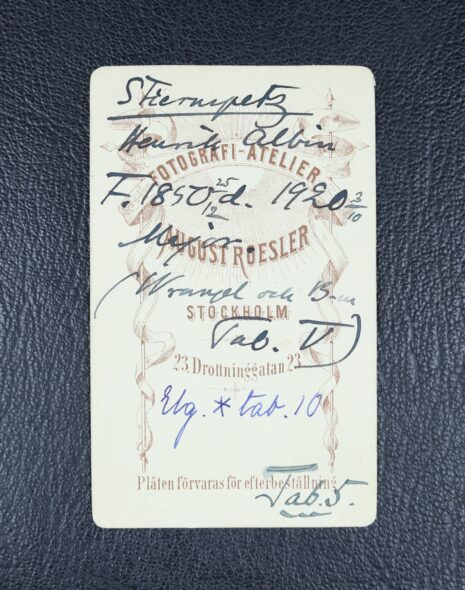 Stiernspetz
Henrik Albin
FOTOGRAFI-ATELIER
F. 1850 25/12 d. 1920 3/10
Major.
AUGUST ROESLER
(Wrangel och B-m
STOCKHOLM
Tab. V)
23 Drottninggatan 23
Elg. * tab. 10
Plåten förvaras för efterbeställning
Tab. 5.